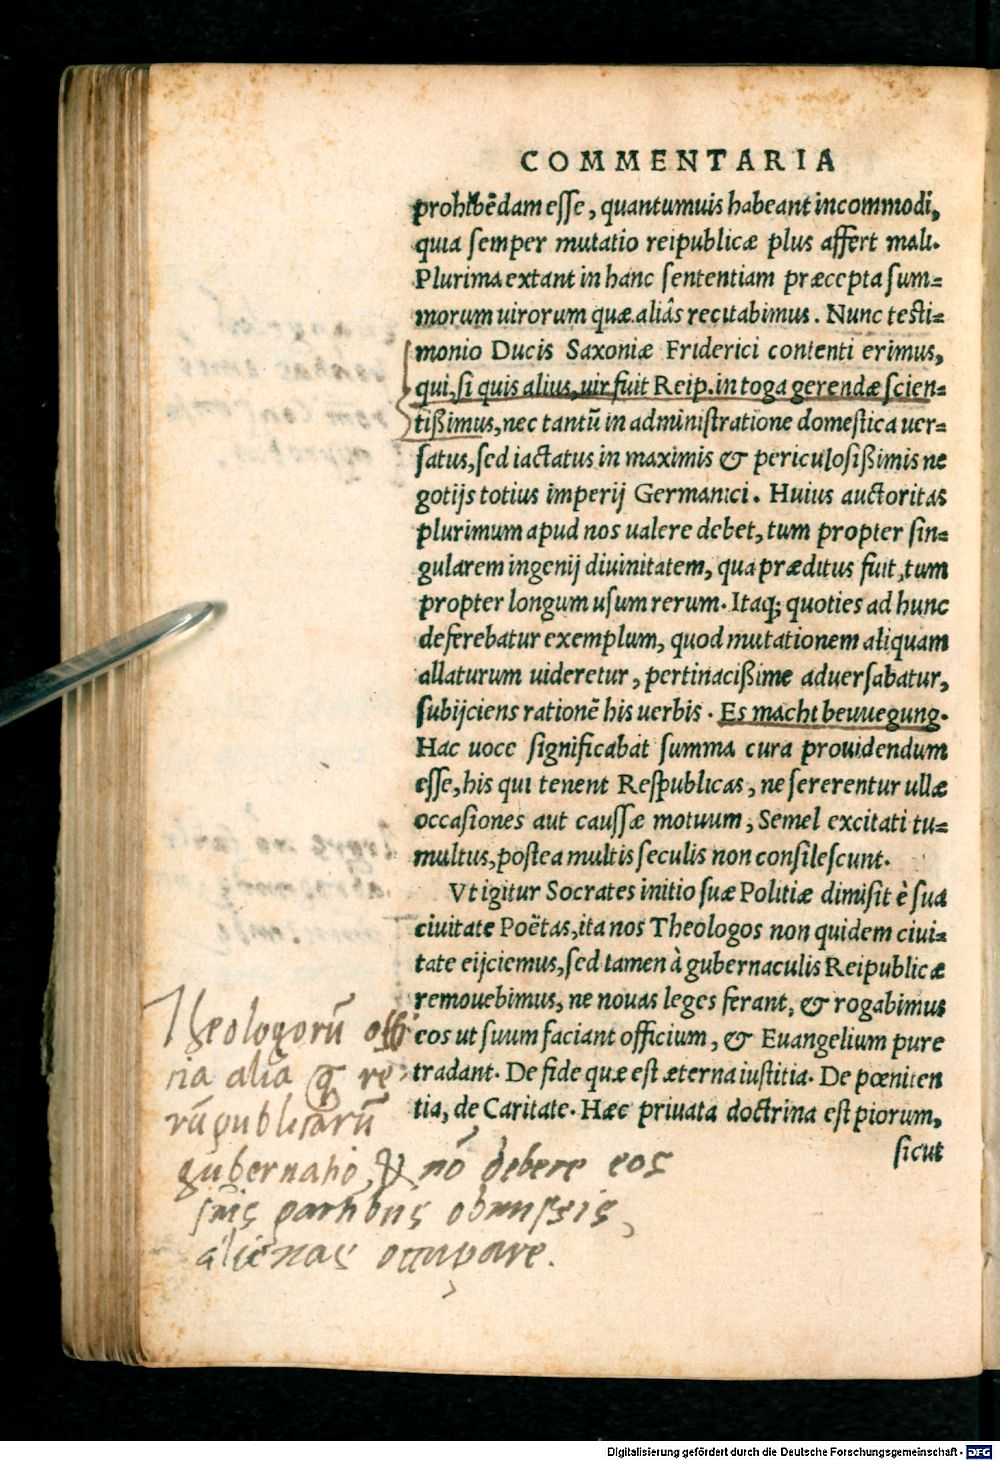 COMMENTARIA
prohibēdam esse, quantumuis habeant incommodi,
quia semper mutatio reipublicæ plus affert mali.
Plurima extant in hanc sententiam præcepta sum=
morum uirorum quæ aliâs recitabimus. Nunc testi=
monio Ducis Saxoniæ Friderici contenti erimus,
qui, si quis alius, uir fuit Reip. in toga gerendæ scien=
tißimus, nec tantū in administratione domestica uer=
satus, sed iactatus in maximis & periculosißimis ne
gotijs totius imperij Germanici. Huius auctoritas
plurimum apud nos ualere debet, tum propter sin=
gularem ingenij diuinitatem, qua præditus fuit, tum
propter longum usum rerum. Itaq; quoties ad hunc
deferebatur exemplum, quod mutationem aliquam
allaturum uideretur, pertinacißime aduersabatur,
subijciens rationē his uerbis. Es macht bewegung.
Hac uoce significabat summa cura prouidendum
esse, his qui tenent Respublicas, ne sererentur ullæ
occasiones aut caussæ motuum, Semel excitati tu=
multus, postea multis seculis non consilescunt.
Vt igitur Socrates initio suæ Politiæ dimisit è sua
ciuitate Poëtas, ita nos Theologos non quidem ciui=
tate eijciemus, sed tamen à gubernaculis Reipublicæ
remouebimus, ne nouas leges ferant, & rogabimus
eos ut suum faciant officium, & Euangelium pure
tradant. De fide quæ est æterna iustitia. De pœniten
tia, de Caritate. Hæc priuata doctrina est piorum,
sicut
Theologorū offi
cia alia q̃ re
rū publicarū
gubernatio, & nō debere eos
suis partibus obmissis,
alienas occupare.
Digitalisierung gefördert durch die Deutsche Forschungsgemeinschaft - DFG